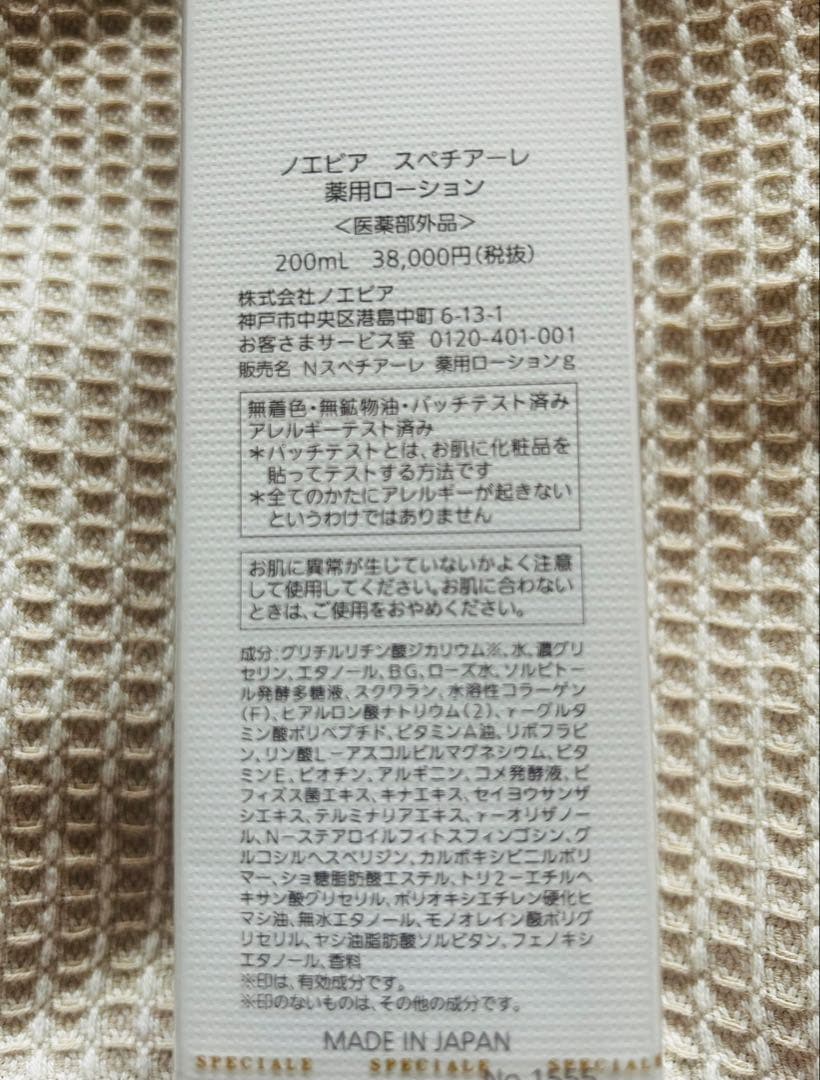 ノエビア スペチアーレ
薬用ローション
<医薬部外品>
200mL 38,000円(税抜)
株式会社ノエビア
神戸市中央区港島中町6-13-1
お客さまサービス室 0120-401-001
販売名 Nスペチアーレ 薬用ローションg
無着色・無鉱物油・パッチテスト済み
アレルギーテスト済み
*パッチテストとは、お肌に化粧品を
貼ってテストする方法です
*全てのかたにアレルギーが起きない
というわけではありません
お肌に異常が生じていないかよく注意
して使用してください。お肌に合わない
ときは、ご使用をおやめください。
成分:グリチルリチン酸ジカリウム※、水、濃グリ
セリン、エタノール、BG、ローズ水、ソルビトー
ル発酵多糖液、スクワラン、水溶性コラーゲン
(F)、ヒアルロン酸ナトリウム(2)、γーグルタ
ミン酸ポリペプチド、ビタミンA油、リボフラビ
ン、リン酸L-アスコルビルマグネシウム、ビタ
ミンE、ビオチン、アルギニン、コメ発酵液、ビ
フィズス菌エキス、キナエキス、セイヨウサンザ
シエキス、テルミナリアエキス、γーオリザノー
ル、N-ステアロイルフィトスフィンゴシン、グ
ルコシルヘスペリジン、カルボキシビニルポリ
マー、ショ糖脂肪酸エステル、トリ2-エチルヘ
キサン酸グリセリル、ポリオキシエチレン硬化ヒ
マシ油、無水エタノール、モノオレイン酸ポリグ
リセリル、ヤシ油脂肪酸ソルビタン、フェノキシ
エタノール、香料
※印は、有効成分です。
※印のないものは、その他の成分です。
MADE IN JAPAN
SPECIALE SPECIALE SPECIALE
No.1555